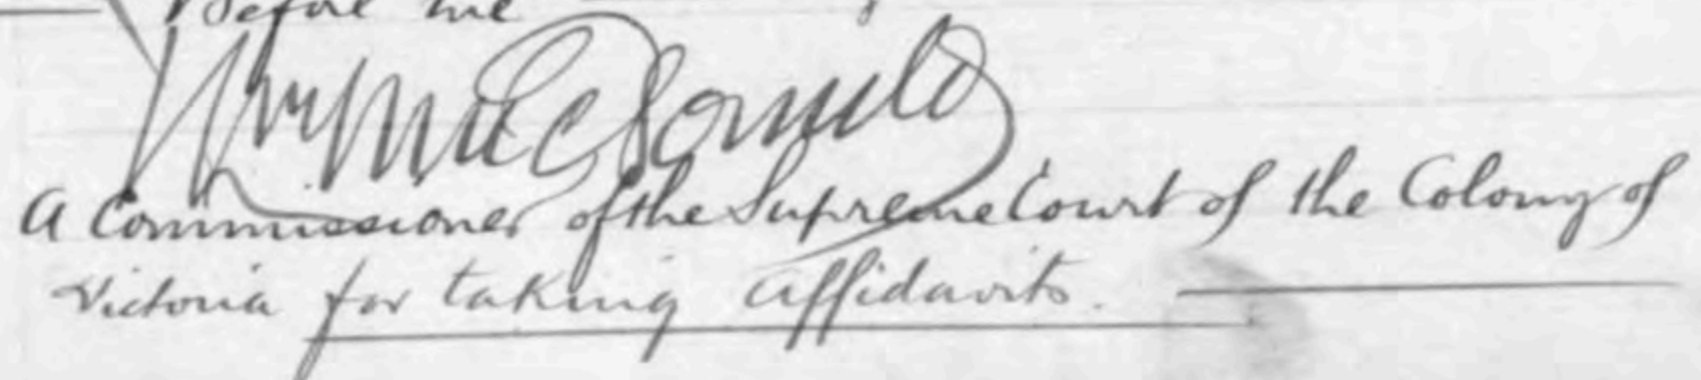 Before me
Wm MacDonald
A Commissioner of the Supreme Court of the Colony of
Victoria for taking affidavits.